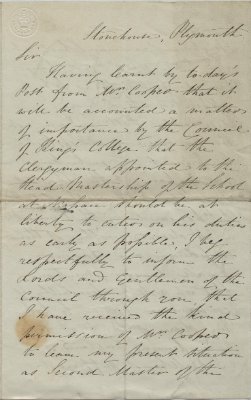 Stonehouse, Plymouth
Sir
Having learnt by to-day's
Post from Mr. Cooper that it
will be accounted a matter
of importance by the Council
of King's College that the
Clergyman appointed to the
Head Mastership of the School
at should be at
liberty to enter on his duties
as early as possible, I beg
respectfully to inform the
Lords and Gentlemen of the
Council through you, that
I have received the kind
permission of Mr. Cooper
to leave my present situation
as Second Master of the